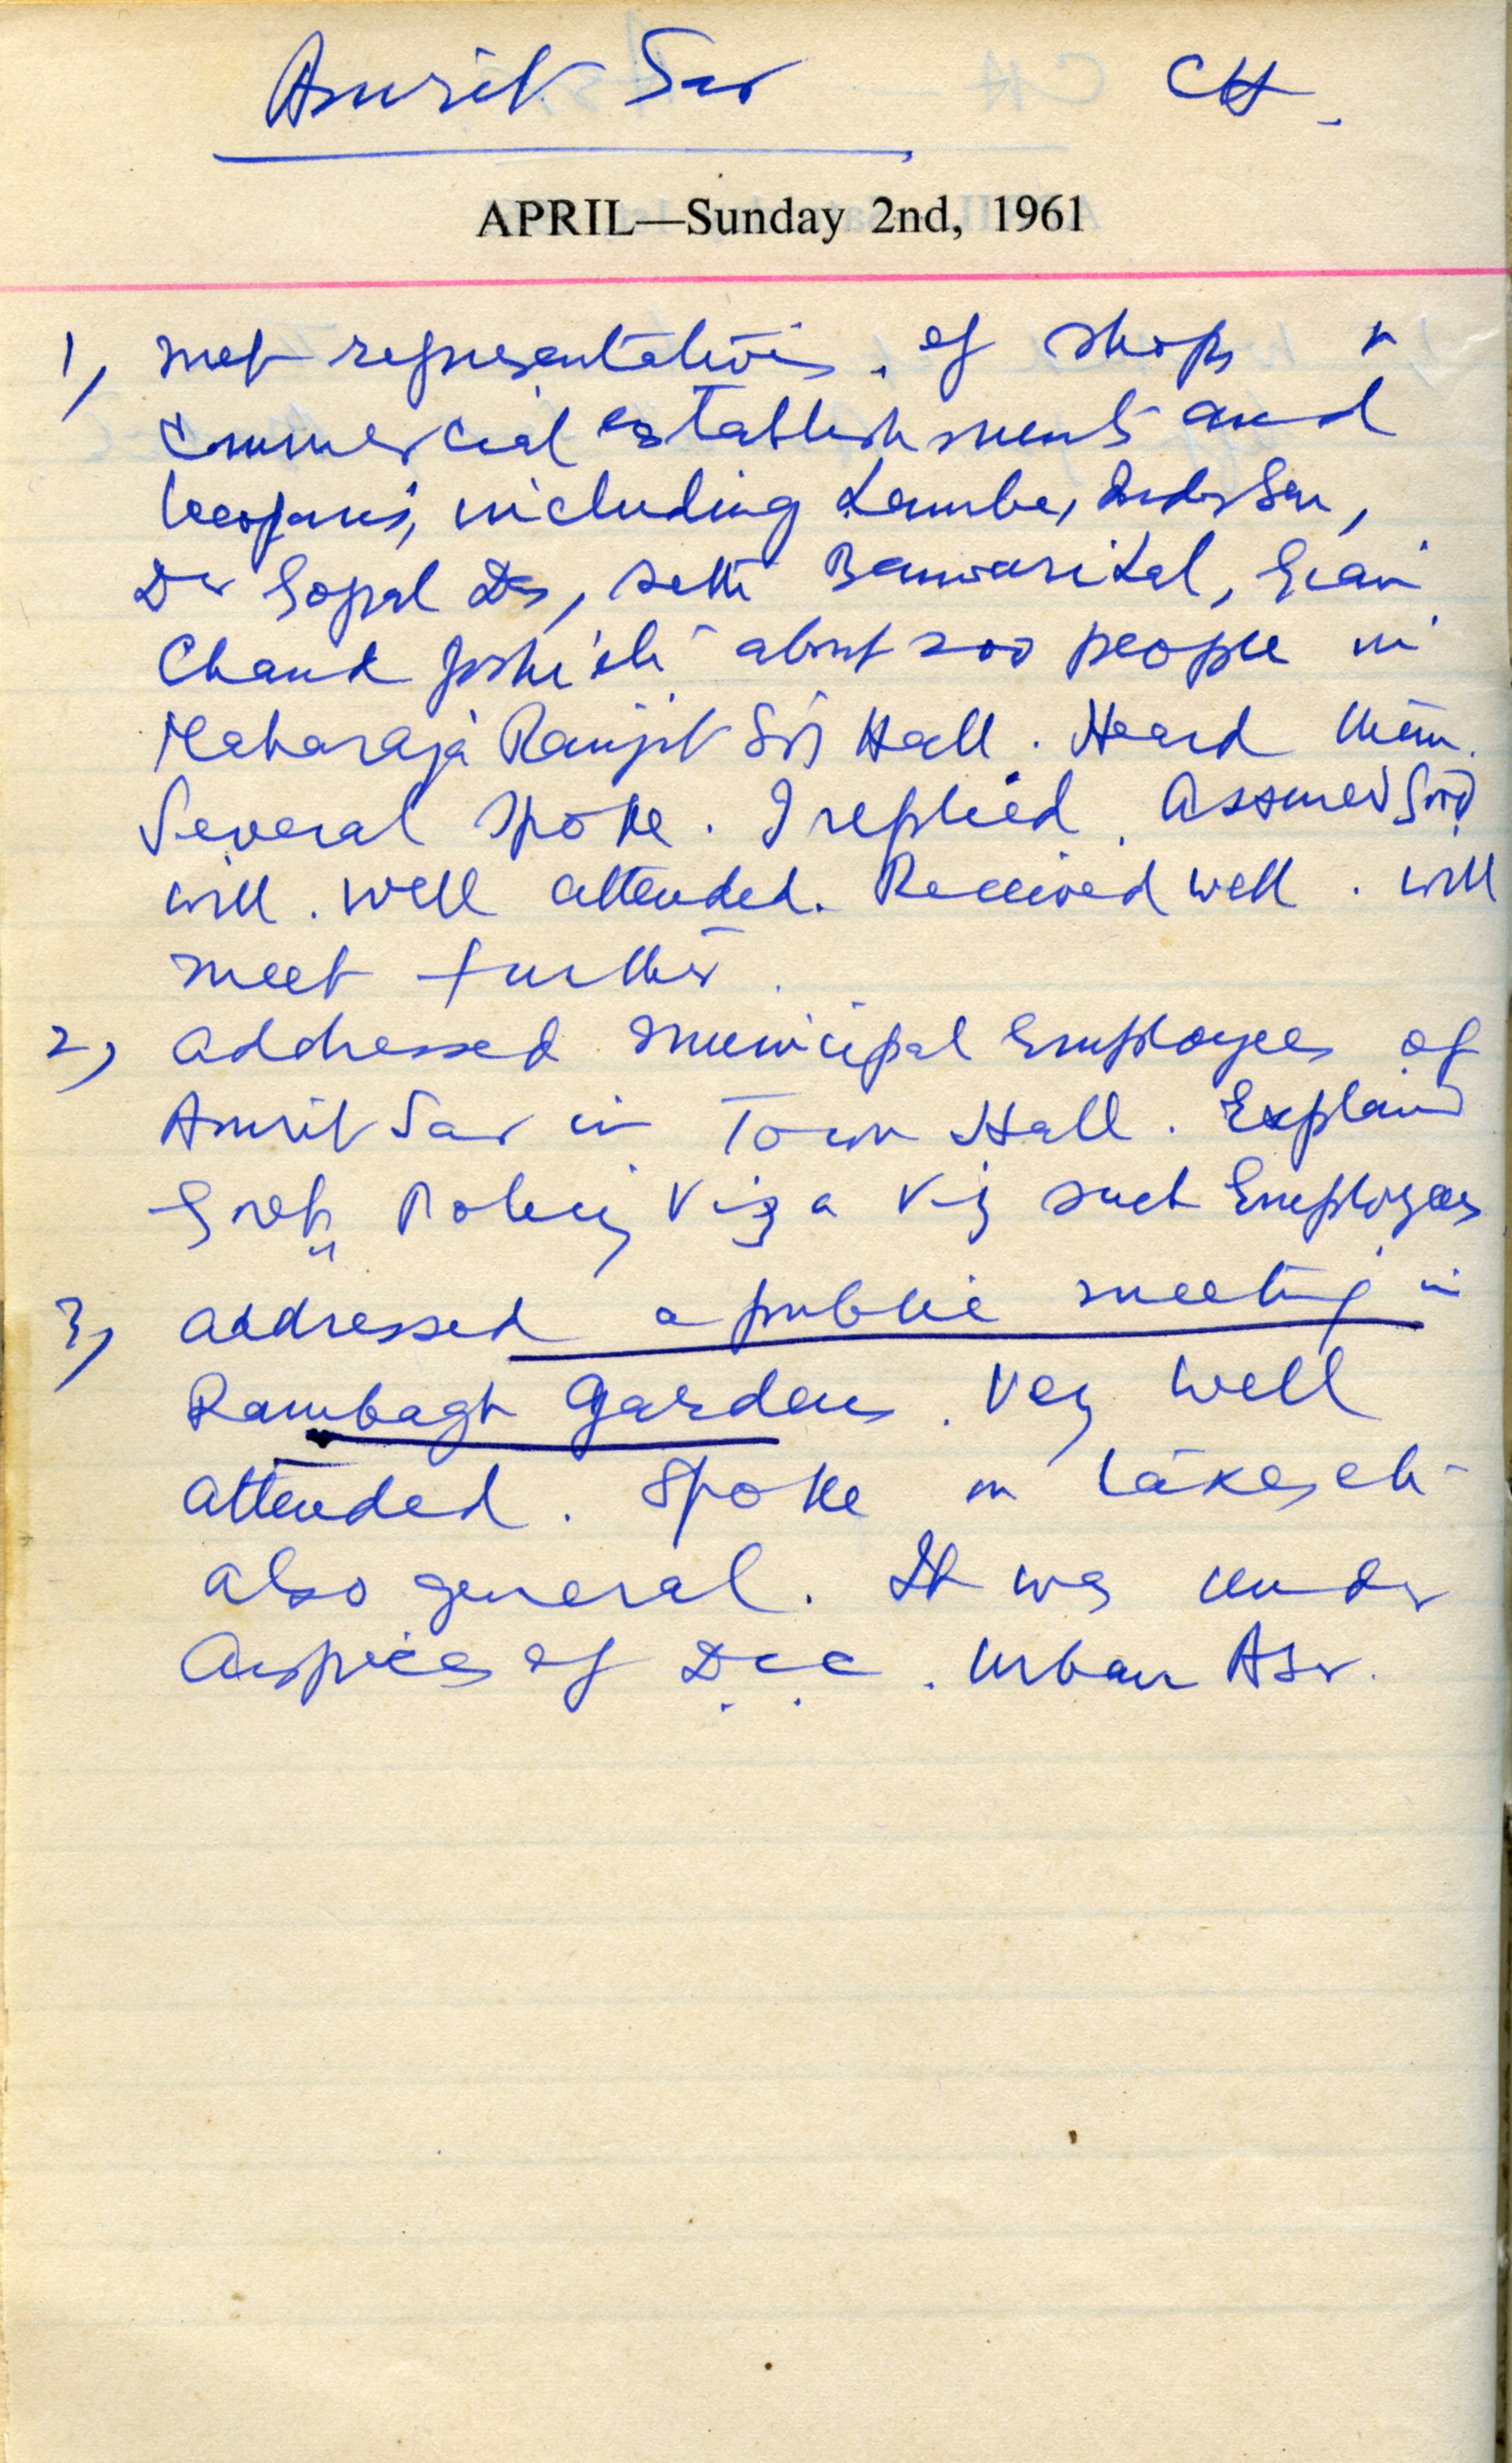 Amrit Sar CH.
APRIL—Sunday 2nd, 1961
1, met representatives of shops &
commercial establishments and
beoparis, including Lamba, Inder Sen,
Dr Gopal Ds, Seth Banwari Lal, Gian
Chand Joshi etc about 200 people in
Maharaja Ranjit Sing Hall. Heard them.
Several spoke. I replied. Assured Good
will. Well attended. Received well. Will
meet further.
2, addressed municipal Employees of
Amrit Sar in Town Hall. Explaind
Govt Policy Viz a Viz such Employees
3, addressed a public meeting in
Rambagh Gardens. Very well
attended. Spoke on
also general. It was under
Auspices of D.C.C. Urban Asr.